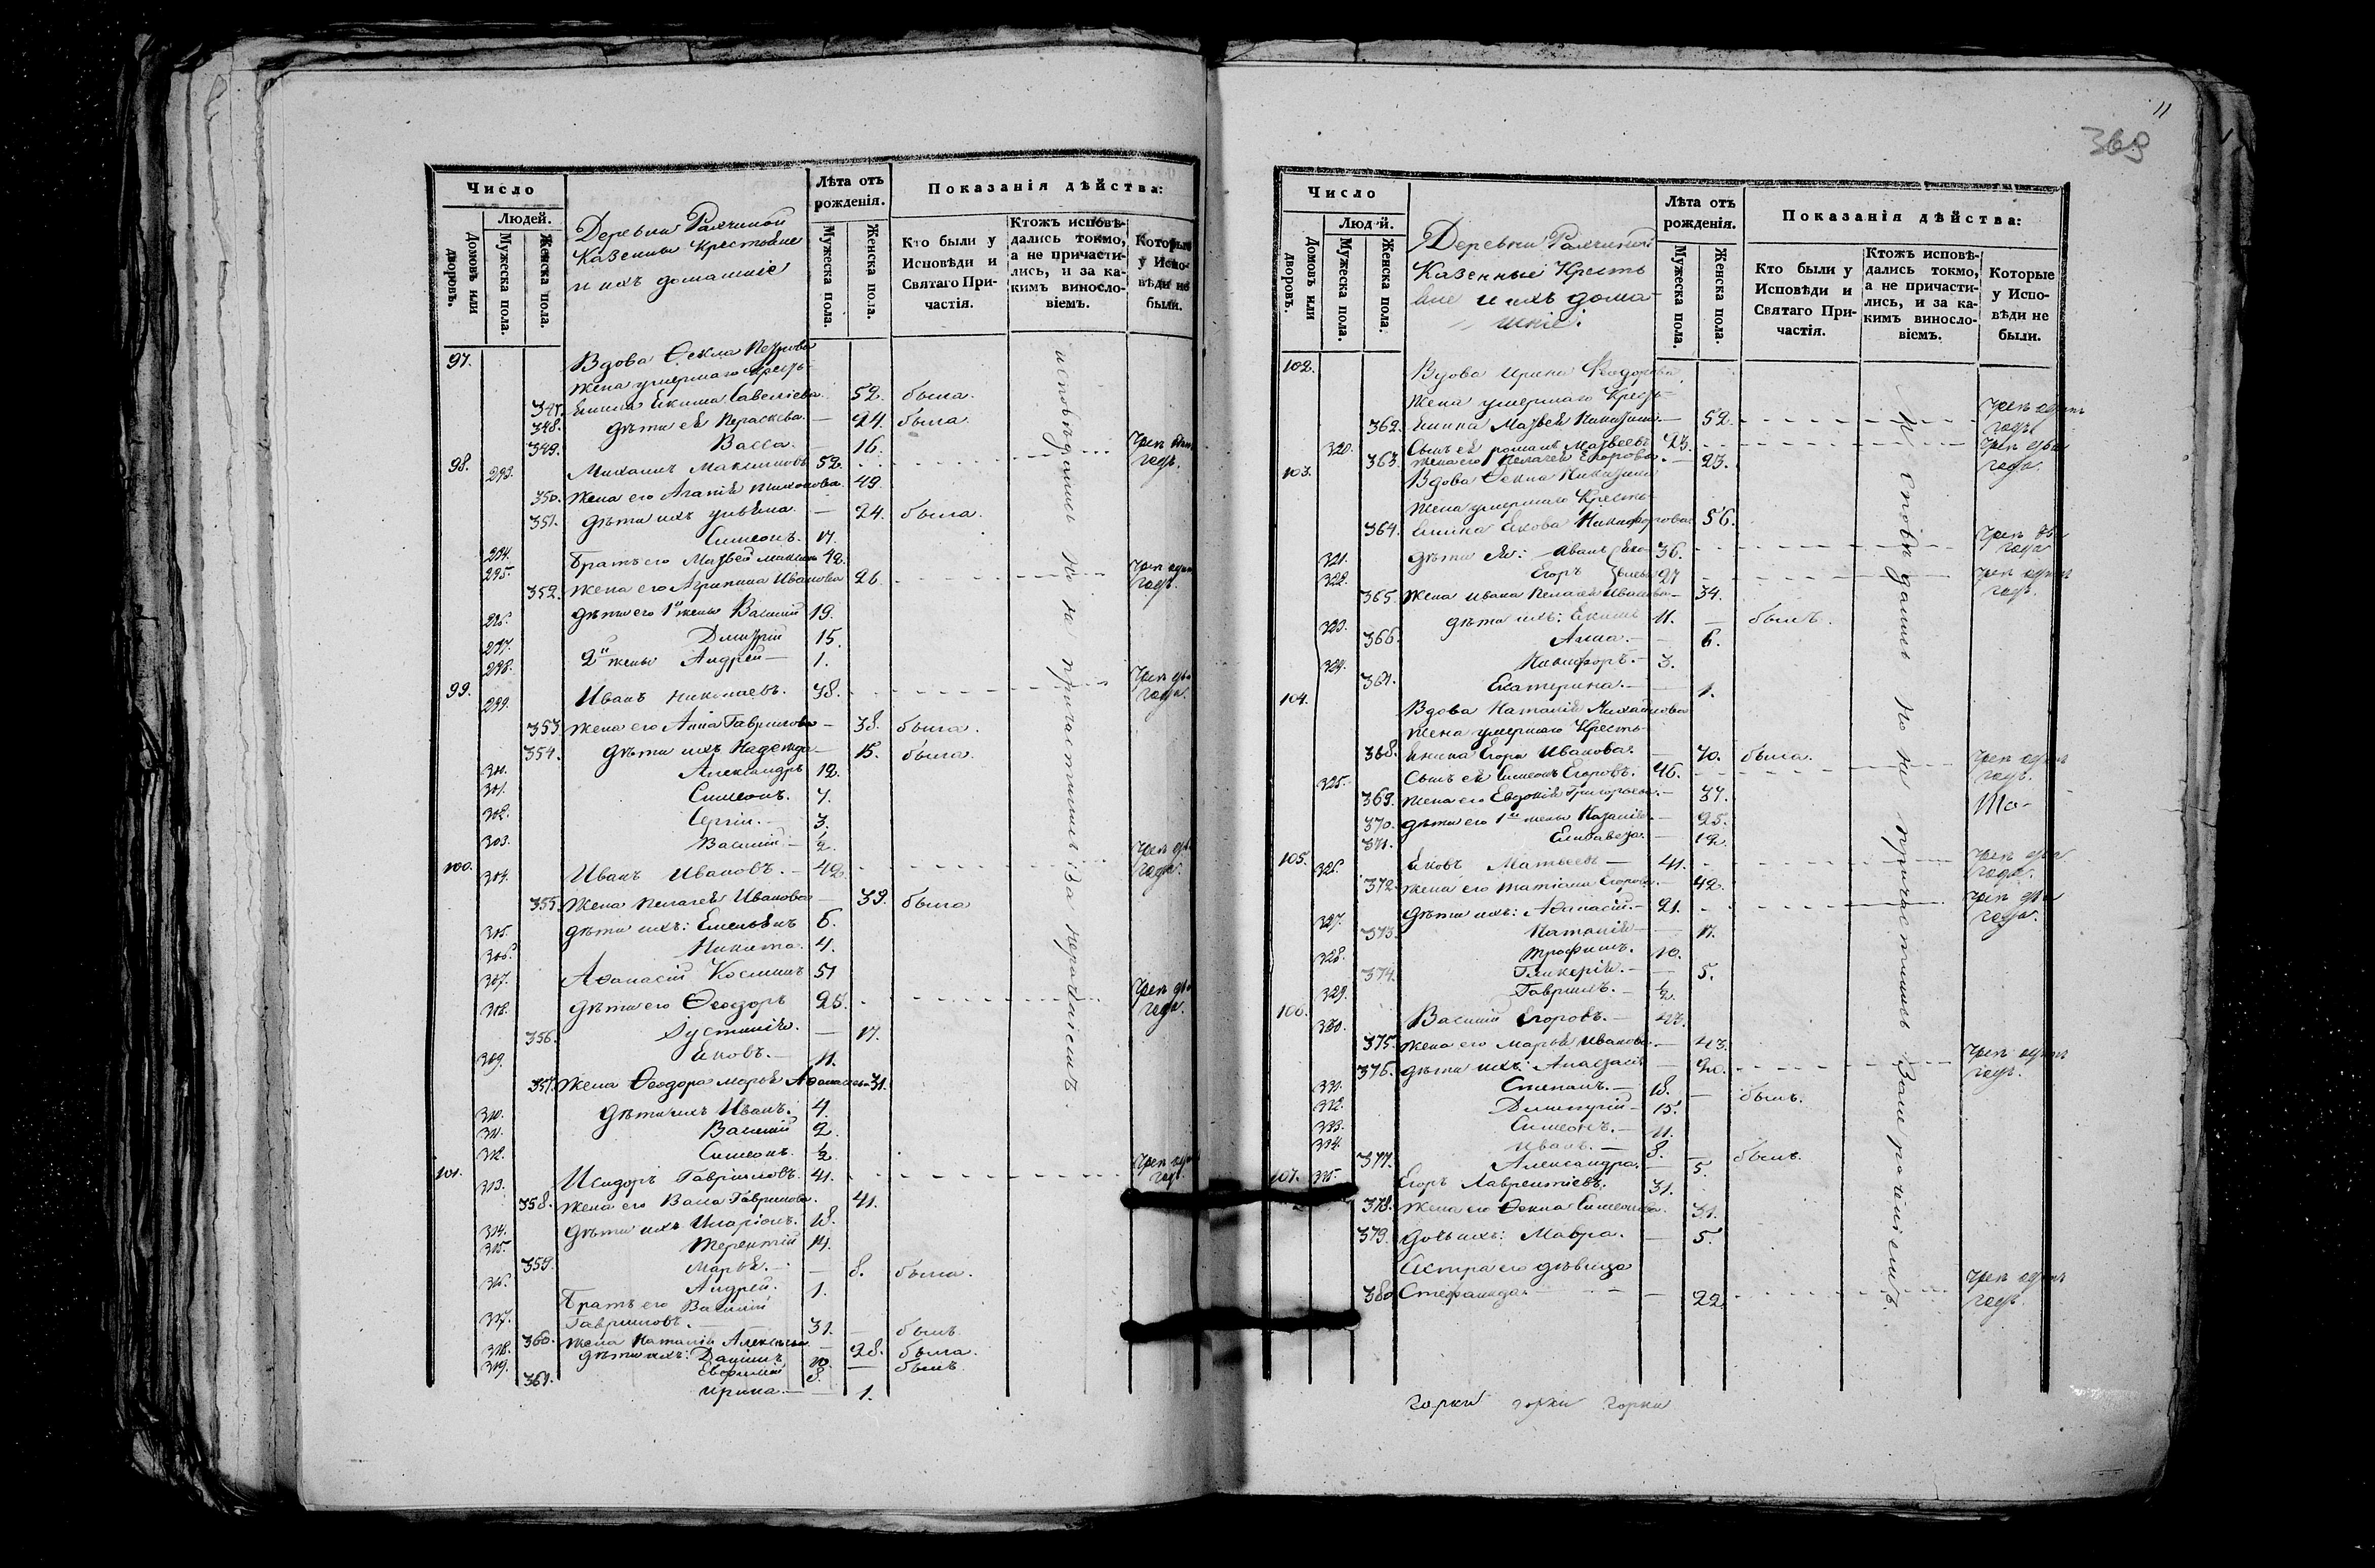 Число
Людей.
Домовъ или дворовъ.
Мужеска пола.
Женска пола.
Деревни
Казенные Крестьяне
и ихъ домашніе
Лѣта отъ рожденія.
Мужеска пола.
Женска пола.
Показанія дѣйства:
Кто были у
Исповѣди и
Святаго При-
частія.
Ктожъ исповѣ-
дались токмо,
а не причасти-
лись, и за ка-
кимъ винносло-
віемъ.
Которые
у Испо-
вѣди не
были.
97. Вдова Ѳекла Петрова
жена умершаго Кресть-
347. янина Екима Савеліева 52. была.
348. дѣти ея Параскева. — 24. была
349. Васса. — 16.
98. 293. Михаилъ Максимовъ 52.
350. жена его Агапія Тихонова 49.
351. дѣти ихъ Ульяна — 24. была.
294. Симеонъ. 17.
295. Братъ его Матвей 42.
352. жена его Агрипина Иванова 26.
296. дѣти его 1й жены Василій 19.
297. Димитрій 15.
298. 2й жены Андрей — 1.
99. 299. Иванъ Николаевъ. 38.
353. жена его Анна Гаврилова — 38. была.
354. дѣти ихъ Надежда — 15. была.
300. Александръ 12.
301. Симеонъ. 7.
302. Сергій. — 3.
303. Василій — ½.
100. 304. Иванъ Ивановъ. — 42
355. Жена Пелагея Иванова — 39. была
305. дѣти ихъ: Емельянъ 6.
306. Никита. 4.
307. Аѳанасій Космин 51
308. дѣти его Ѳеодоръ 25.
356. Іустинія. — 17.
309. Яковъ. — 11.
357. Жена Ѳеодора Марья 31.
310. дѣти ихъ Иванъ. 4.
311. Василій 2.
312. Симеонъ. ½.
101. 313. Исидоръ Гавриловъ. 41.
358. жена его Васса Гаврилова. 41.
314. дѣти ихъ Иларіонъ. 18.
315. Терентій 14.
359. Марья. — 8. была.
316. Андрей. 1.
Братъ его Василій
317. Гавриловъ. — 31. — былъ
360. жена Наталія Алексѣева — 28. была.
318. дѣти ихъ: Даніилъ 10. — былъ
319. Евфимій 8.
361. Ирина. — 1.
исповѣдались но не причастились за нерачініемъ.
11
369
Число
Людей.
Домовъ или дворовъ.
Мужеска пола.
Женска пола.
Деревни
Казенные Кресть
яне и ихъ дома-
шніе.
Лѣта отъ рожденія.
Мужеска пола.
Женска пола.
Показанія дѣйства:
Кто были у
Исповѣди и
Святаго При-
частія.
Ктожъ исповѣ-
дались токмо,
а не причасти-
лись, и за ка-
кимъ винносло-
віемъ.
Которые
у Испо-
вѣди не
были.
102. Вдова Ирина Ѳеодорова
жена умершаго Кресть-
362. янина Матвея Никитина — 52.
320. Сынъ ея Романъ Матвеевъ 23.
363. жена его Пелагея Егорова. — 23.
103. Вдова Ѳекла Никитина
жена умершаго Кресть-
364. янина Якова Никифорова 56.
321. дѣти ея: Иванъ 36.
322. Егоръ 27
365. жена Ивана Пелагея Иванова — 34.
323. дѣти ихъ: Екимъ 11. — былъ.
366. Анна. — 6.
324. Никифоръ. — 3.
367. Екатерина. — 1.
104. Вдова Наталія Михайлова
жена умершаго Кресть-
368. янина Егора Иванова. — 70. была.
325. Сынъ ея Симеонъ Егоровъ. 46.
369. жена его Евдокія Григорьева. — 37.
370. дѣти его 1й жены Наталія — 25.
371. Елисавета. — 12.
105. 326. Яковъ Матвеевъ — 41.
372. жена его Татіана Егорова. — 42.
327. дѣти ихъ: Аѳанасій. — 21.
373. Наталія — 17.
328. Трофимъ. 10.
374. Гликерія. — 5.
329. Гаврилъ. — ½.
106. 330. Василій Егоровъ. — 43.
375. жена его Марья Иванова. — 43.
376. дѣти ихъ: Анастасія — 20.
331. Степанъ. — 18. — былъ.
332. Димитрій — 15.
333. Симеонъ. — 11.
334. Иванъ. — 8. — былъ.
377. Александра. — 5.
107. 335. Егоръ Лаврентіевъ. 31.
378. жена его Ѳекла Симеонова. 31.
379. дочь ихъ: Мавра. — 5.
Сестра его дѣвица
380. Стефанида. — 22.
исповѣдались но не причастились за нерачініемъ.
горки горки горки